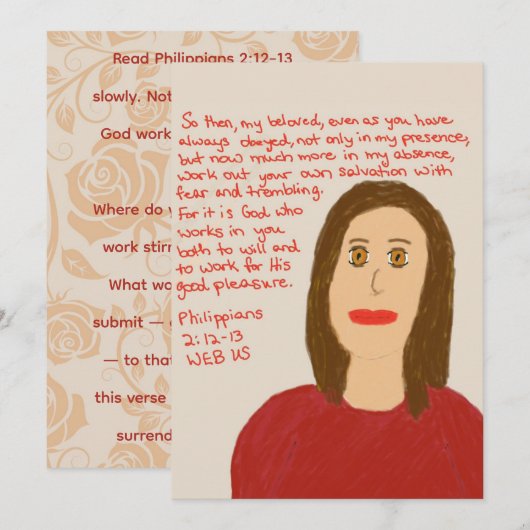 Read Philippians 2:12-13
slowly. Not
God work
Where do
work stirr
What wo
submit —
— to that
this verse
surrend
So then, my beloved, even as you have
always obeyed, not only in my presence,
but now much more in my absence,
work out your own salvation with
fear and trembling.
For it is God who
works in you
both to will and
to work for His
good pleasure.
Philippians
2:12-13
WEB US